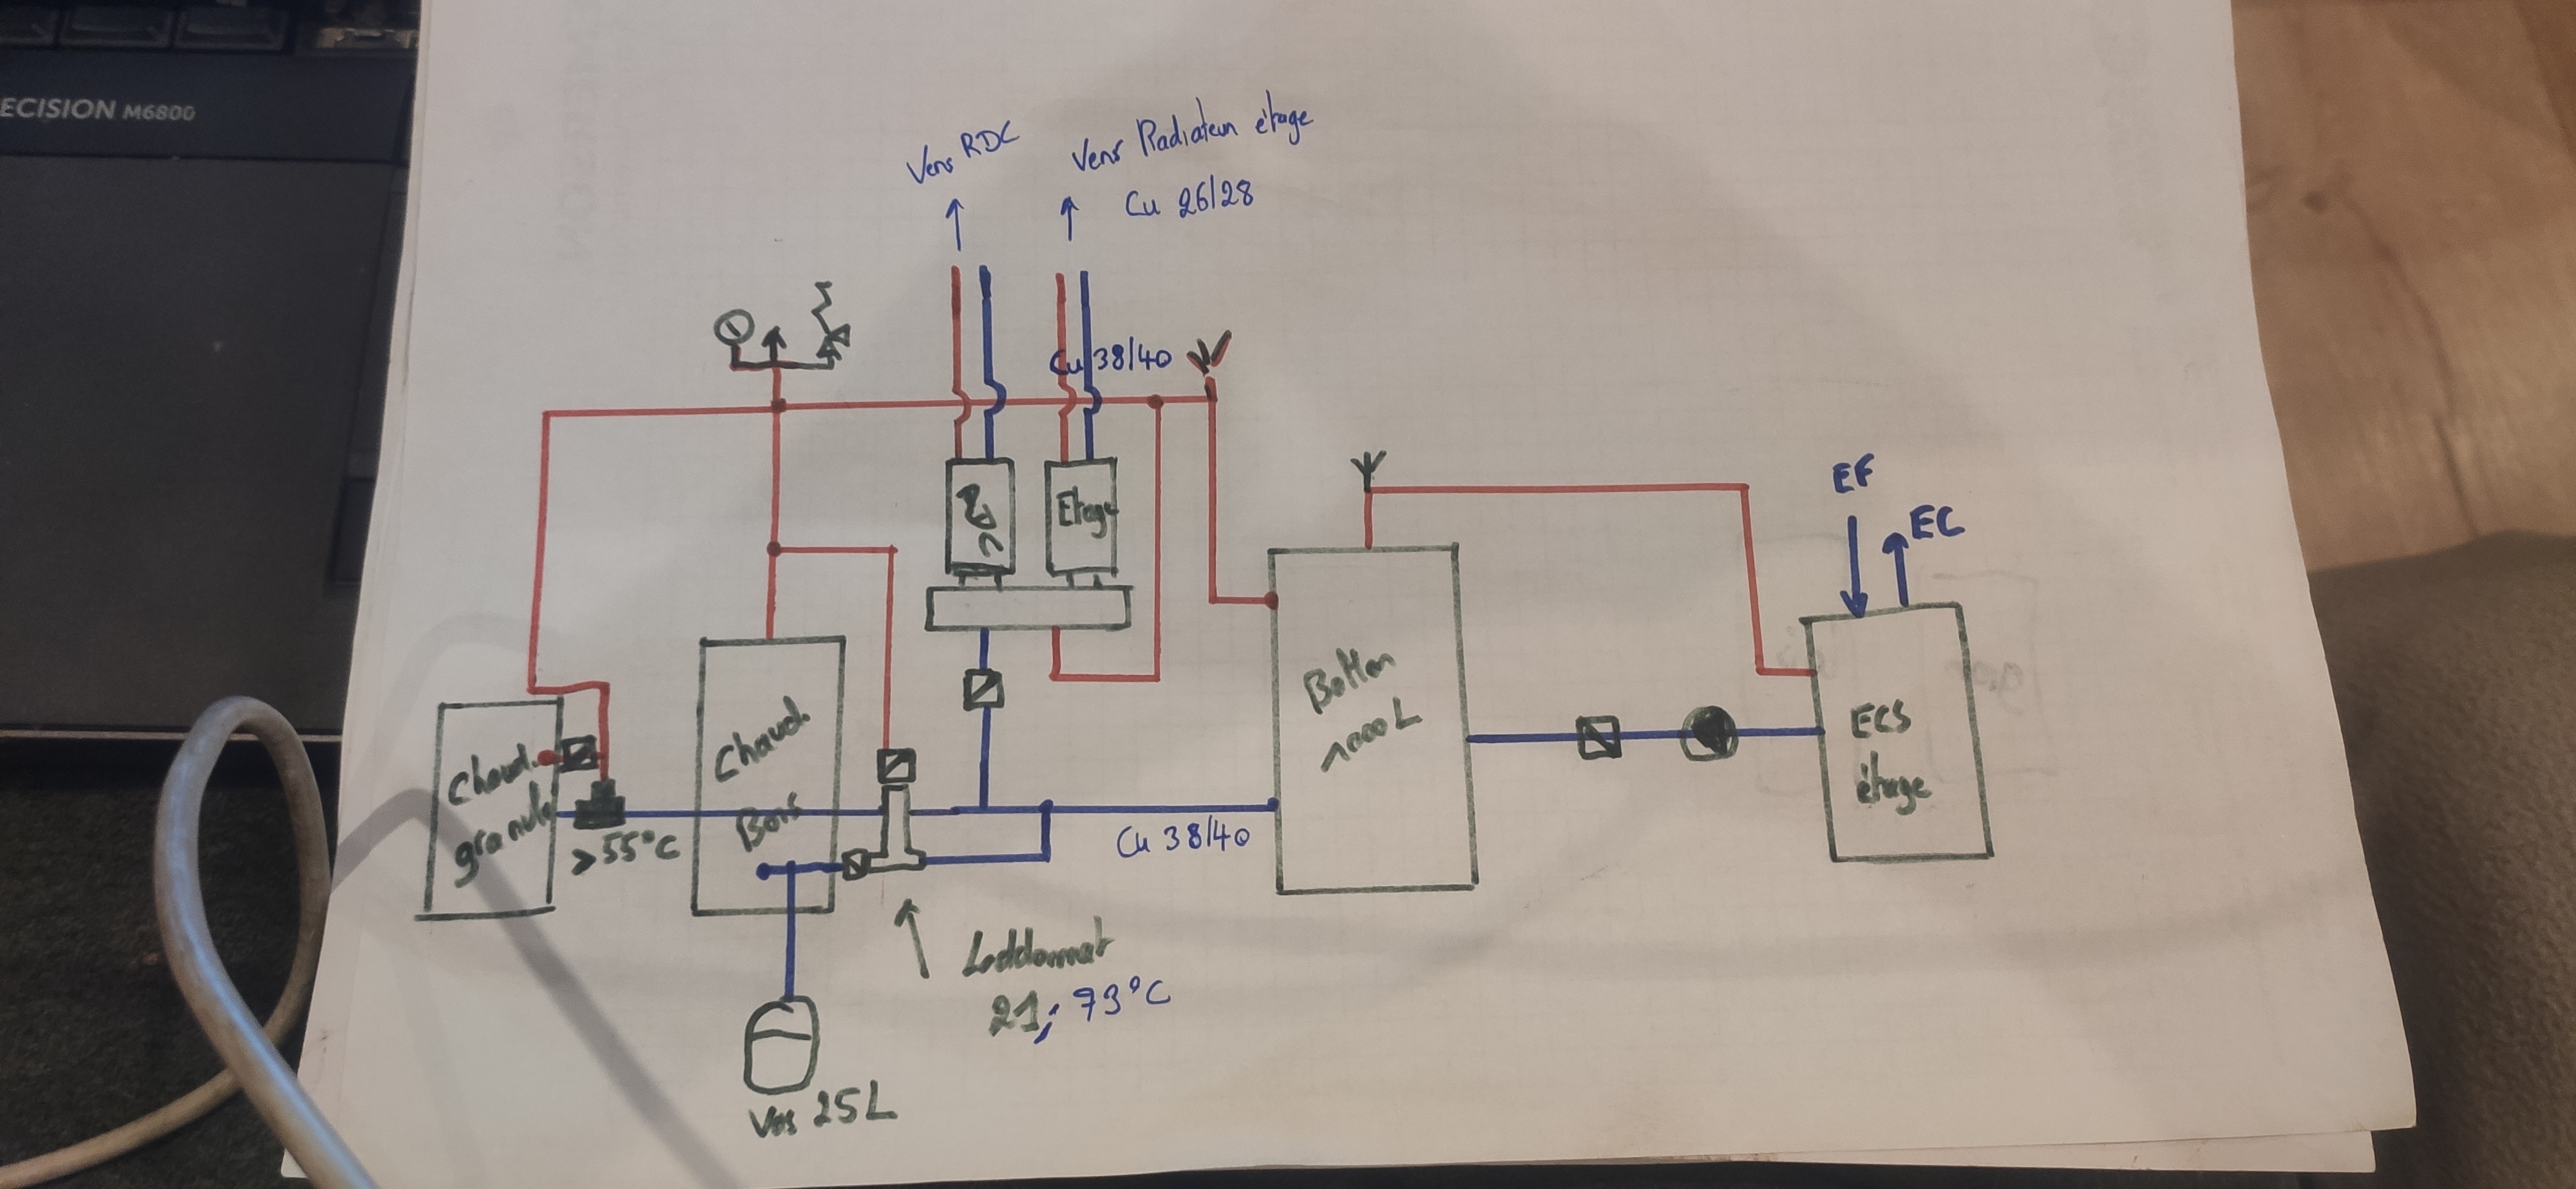 ECISION M6800
Vers RDC
Vers Radiateur étage
Cu 26/28
Cu 38/40
Etage
EF
EC
Ballon
1000L
ECS
étage
Chaud.
granulé
>55°C
Chaud.
Bois
Cu 38/40
Laddomat
21; 73°C
Vas 25L